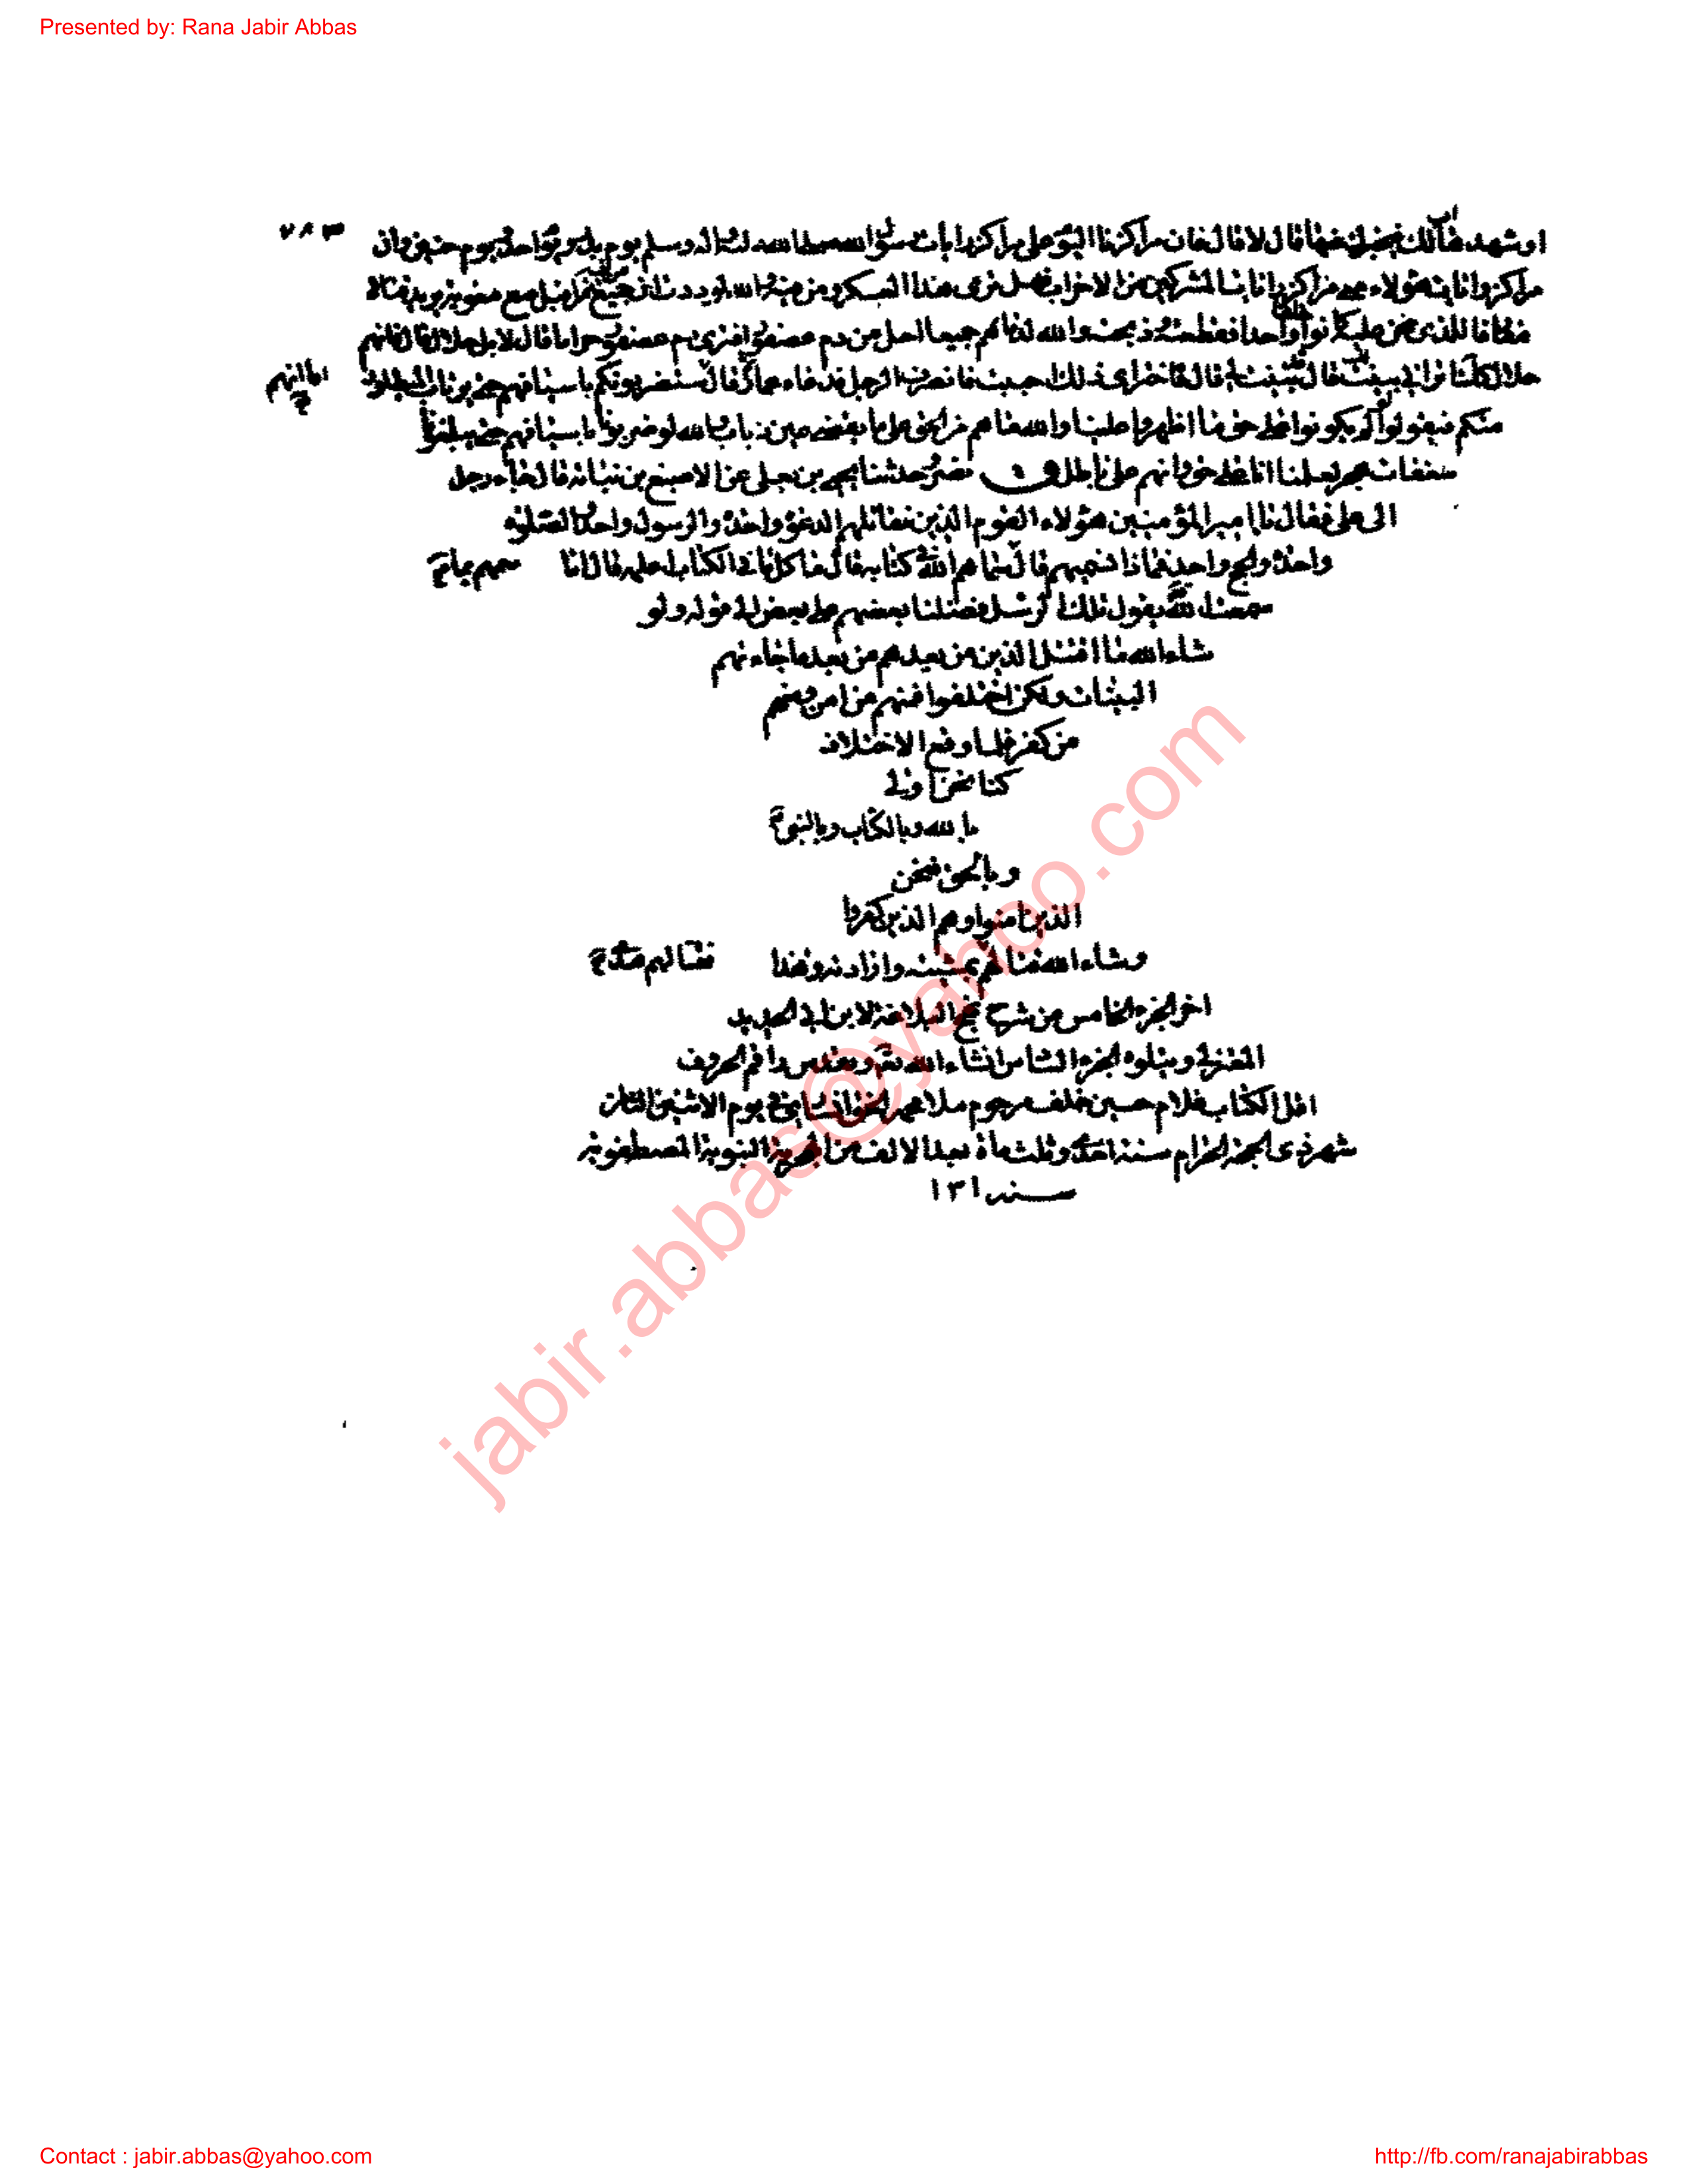 Presented by: Rana Jabir Abbas
او شهدها لك فيخبرك عنها قال لا قال فان مراكزنا اليوم على مراكز رايات رسول الله صلى الله عليه واله وسلم يوم بدر ويوم احد ويوم حنين وان
مراكز رايات هؤلاء على مراكز رايات المشركين من الاحزاب فهل ترى هذا العسكر ومن فيه والله لوددت ان جميع من اقبل مع معوية يريد قتالنا
مفارقا للذي نحن عليه كانوا خلقا واحدا فقطعته وذبحته والله لدماؤهم جميعا احل من دم عصفور افترى دم عصفور حراما قال لا بل حلال قال فانهم
حلال كذلك اتراني بينت لك قال قد بينت لي قال فاختر اي ذلك احببت فانصرف الرجل فدعاه عمار ثم قال سيضربونكم باسيافهم حتى يرتاب المبطلون
اما انهم
منكم فيقولوا لو لم يكونوا على حق ما اظهروا علينا والله ما هم من الحق على ما يقذي عين ذباب والله لو ضربونا باسيافهم حتى يبلغونا
سعفات هجر لعلمنا انا على حق وانهم على باطل نصر وحدثنا يحيى بن يعلى عن الاصبغ بن نباته قال جاء رجل
الى علي فقال يا امير المؤمنين هؤلاء القوم الذين نقاتلهم الدعوة واحدة والرسول واحد والصلوة
واحدة والحج واحد فماذا نسميهم قال سمهم بما سماهم الله في كتابه قال ما كل ما في الكتاب اعلمه قال اما
سمعت الله يقول تلك الرسل فضلنا بعضهم على بعض الى قوله ولو
شاء الله ما اقتتل الذين من بعدهم من بعد ما جاءتهم
البينات ولكن اختلفوا فمنهم من امن ومنهم
من كفر فلما وقع الاختلاف
كنا نحن اولى
بالله وبالكتاب وبالنبي
وبالحق فنحن
الذين امنوا وهم الذين كفروا
وشاء الله قتالهم بمشيته وارادته هذا
اخر الجزء الخامس من شرح نهج البلاغة لابن ابي الحديد
المعتزلي ويتلوه الجزء السادس انشاء الله راقم الحروف
اقل الكتاب غلام حسين خلف مرحوم ملا يوم الاثنين
شهر ذي الحجة الحرام سنة احدى وثلث مأة بعد الالف من الهجرة النبوية المصطفوية
سنه ١٣١
jabir.abbas@yahoo.com
Contact : jabir.abbas@yahoo.com
http://fb.com/ranajabirabbas